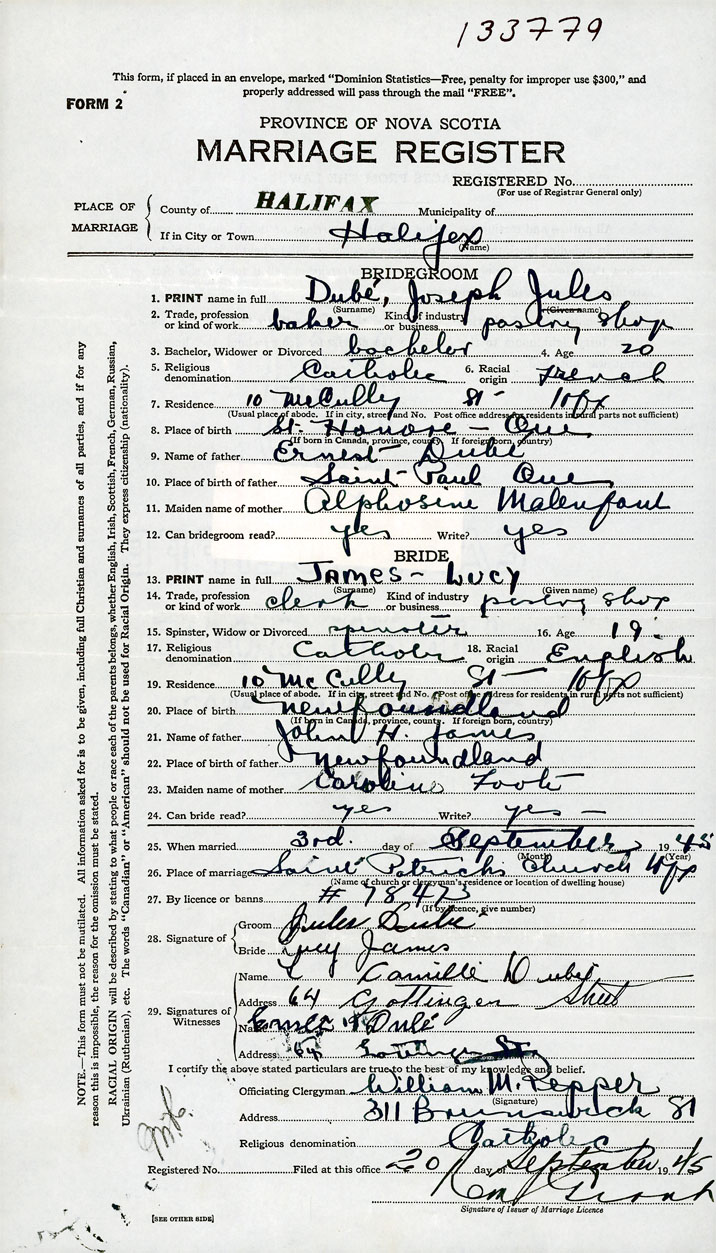 133779
This form, if placed in an envelope, marked "Dominion Statistics—Free, penalty for improper use $300," and
properly addressed will pass through the mail "FREE".
FORM 2
PROVINCE OF NOVA SCOTIA
MARRIAGE REGISTER
REGISTERED No.
(For use of Registrar General only)
PLACE OF MARRIAGE
County of HALIFAX Municipality of
If in City or Town Halifax
(Name)
BRIDEGROOM
1. PRINT name in full Dubé, Joseph Jules
(Surname) (Given name)
2. Trade, profession or kind of work baker Kind of industry or business pastry shop
3. Bachelor, Widower or Divorced bachelor 4. Age 20
5. Religious denomination Catholic 6. Racial origin French
7. Residence 10 McCully St - Hfx
(Usual place of abode. If in city, street and No. Post office address for residents in rural parts not sufficient)
8. Place of birth St. Honore - Que
(If born in Canada, province, county. If foreign born, country)
9. Name of father Ernest Dubé
10. Place of birth of father Saint Paul Que
11. Maiden name of mother Alphosine Malenfant
12. Can bridegroom read? yes Write? yes
BRIDE
13. PRINT name in full JAMES - LUCY
(Surname) (Given name)
14. Trade, profession or kind of work clerk Kind of industry or business pastry shop
15. Spinster, Widow or Divorced spinster 16. Age 19.
17. Religious denomination Catholic 18. Racial origin English
19. Residence 10 McCully St - Hfx
(Usual place of abode. If in city, street and No. Post office address for residents in rural parts not sufficient)
20. Place of birth newfoundland
(If born in Canada, province, county. If foreign born, country)
21. Name of father John H. James
22. Place of birth of father newfoundland
23. Maiden name of mother Caroline Foote
24. Can bride read? yes Write? yes -
25. When married 3rd. day of September 1945
(Month) (Year)
26. Place of marriage Saint Patricks Church Hfx
(Name of church or clergyman's residence or location of dwelling house)
27. By licence or banns # 78473
(If by licence, give number)
28. Signature of
Groom Jules Dubé
Bride Lucy James
29. Signatures of Witnesses
Name Camille Dubé
Address 64 Gottingen Street
Name Dubé
Address 64 Gottingen St
I certify the above stated particulars are true to the best of my knowledge and belief.
Officiating Clergyman William M. Pepper
(Signature)
Address 311 Brunswick St
Religious denomination Catholic
Registered No. Filed at this office 20 day of September 1945
Grant
Signature of Issuer of Marriage Licence
[SEE OTHER SIDE]
NOTE.—This form must not be mutilated. All information asked for is to be given, including full Christian and surnames of all parties, and if for any
reason this is impossible, the reason for the omission must be stated.
RACIAL ORIGIN will be described by stating to what people or race each of the parents belongs, whether English, Irish, Scottish, French, German, Russian,
Ukrainian (Ruthenian), etc. The words "Canadian" or "American" should not be used for Racial Origin. They express citizenship (nationality).